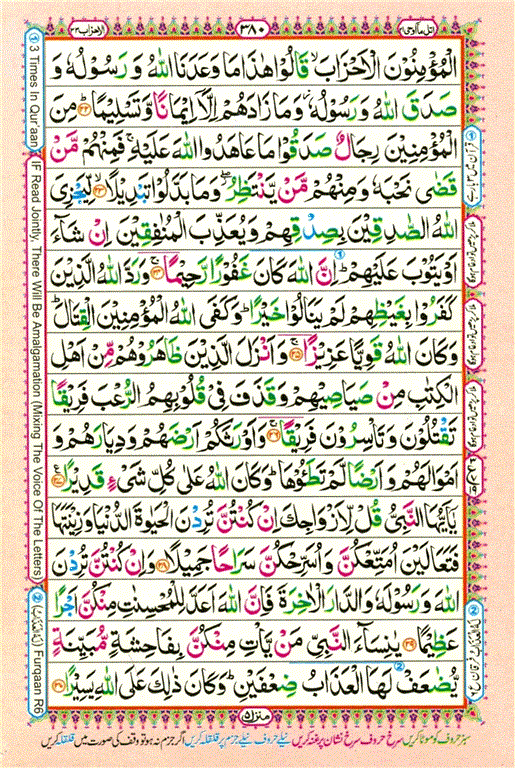 اتل مآ اوحی ۲۱
۳۸۰
الاحزاب ۳۳
الْمُؤْمِنُوْنَ الْاَحْزَابَ ۙ قَالُوْا هٰذَا مَا وَعَدَنَا اللّٰهُ وَ رَسُوْلُهٗ وَ
صَدَقَ اللّٰهُ وَ رَسُوْلُهٗ ؗ وَ مَا زَادَهُمْ اِلَّاۤ اِیْمَانًا وَّ تَسْلِیْمًا ؕ۲۲ مِنَ
الْمُؤْمِنِیْنَ رِجَالٌ صَدَقُوْا مَا عَاهَدُوا اللّٰهَ عَلَیْهِ ۚ فَمِنْهُمْ مَّنْ
قَضٰی نَحْبَهٗ وَ مِنْهُمْ مَّنْ یَّنْتَظِرُ ۖؗ وَ مَا بَدَّلُوْا تَبْدِیْلًا ۙ۲۳ لِّیَجْزِیَ
اللّٰهُ الصّٰدِقِیْنَ بِصِدْقِهِمْ وَ یُعَذِّبَ الْمُنٰفِقِیْنَ اِنْ شَآءَ
اَوْ یَتُوْبَ عَلَیْهِمْ ؕ اِنَّ اللّٰهَ كَانَ غَفُوْرًا رَّحِیْمًا ۚ۲۴ وَ رَدَّ اللّٰهُ الَّذِیْنَ
كَفَرُوْا بِغَیْظِهِمْ لَمْ یَنَالُوْا خَیْرًا ؕ وَ كَفَی اللّٰهُ الْمُؤْمِنِیْنَ الْقِتَالَ ؕ
وَ كَانَ اللّٰهُ قَوِیًّا عَزِیْزًا ۚ۲۵ وَ اَنْزَلَ الَّذِیْنَ ظَاهَرُوْهُمْ مِّنْ اَهْلِ
الْكِتٰبِ مِنْ صَیَاصِیْهِمْ وَ قَذَفَ فِیْ قُلُوْبِهِمُ الرُّعْبَ فَرِیْقًا
تَقْتُلُوْنَ وَ تَاْسِرُوْنَ فَرِیْقًا ۚ۲۶ وَ اَوْرَثَكُمْ اَرْضَهُمْ وَ دِیَارَهُمْ وَ
اَمْوَالَهُمْ وَ اَرْضًا لَّمْ تَطَـُٔوْهَا ؕ وَ كَانَ اللّٰهُ عَلٰی كُلِّ شَیْءٍ قَدِیْرًا ۲۷
یٰۤاَیُّهَا النَّبِیُّ قُلْ لِّاَزْوَاجِكَ اِنْ كُنْتُنَّ تُرِدْنَ الْحَیٰوةَ الدُّنْیَا وَ زِیْنَتَهَا
فَتَعَالَیْنَ اُمَتِّعْكُنَّ وَ اُسَرِّحْكُنَّ سَرَاحًا جَمِیْلًا ۲۸ وَ اِنْ كُنْتُنَّ تُرِدْنَ
اللّٰهَ وَ رَسُوْلَهٗ وَ الدَّارَ الْاٰخِرَةَ فَاِنَّ اللّٰهَ اَعَدَّ لِلْمُحْسِنٰتِ مِنْكُنَّ اَجْرًا
عَظِیْمًا ۲۹ یٰنِسَآءَ النَّبِیِّ مَنْ یَّاْتِ مِنْكُنَّ بِفَاحِشَةٍ مُّبَیِّنَةٍ
یُّضٰعَفْ لَهَا الْعَذَابُ ضِعْفَیْنِ ؕ وَ كَانَ ذٰلِكَ عَلَی اللّٰهِ یَسِیْرًا ۳۰
منزل ۵
سبز حروف کو موٹا کریں سرخ حروف سرخ نشان پر غنہ کریں نیلے حروف نیلے جزم پر قلقلہ کریں اگر جزم نہ ہو تو وقف کی صورت میں قلقلہ کریں
3 Times In Qur'aan
IF Read Jointly, There Will Be Amalgamation (Mixing The Voice Of The Letters)
② Furqaan R6